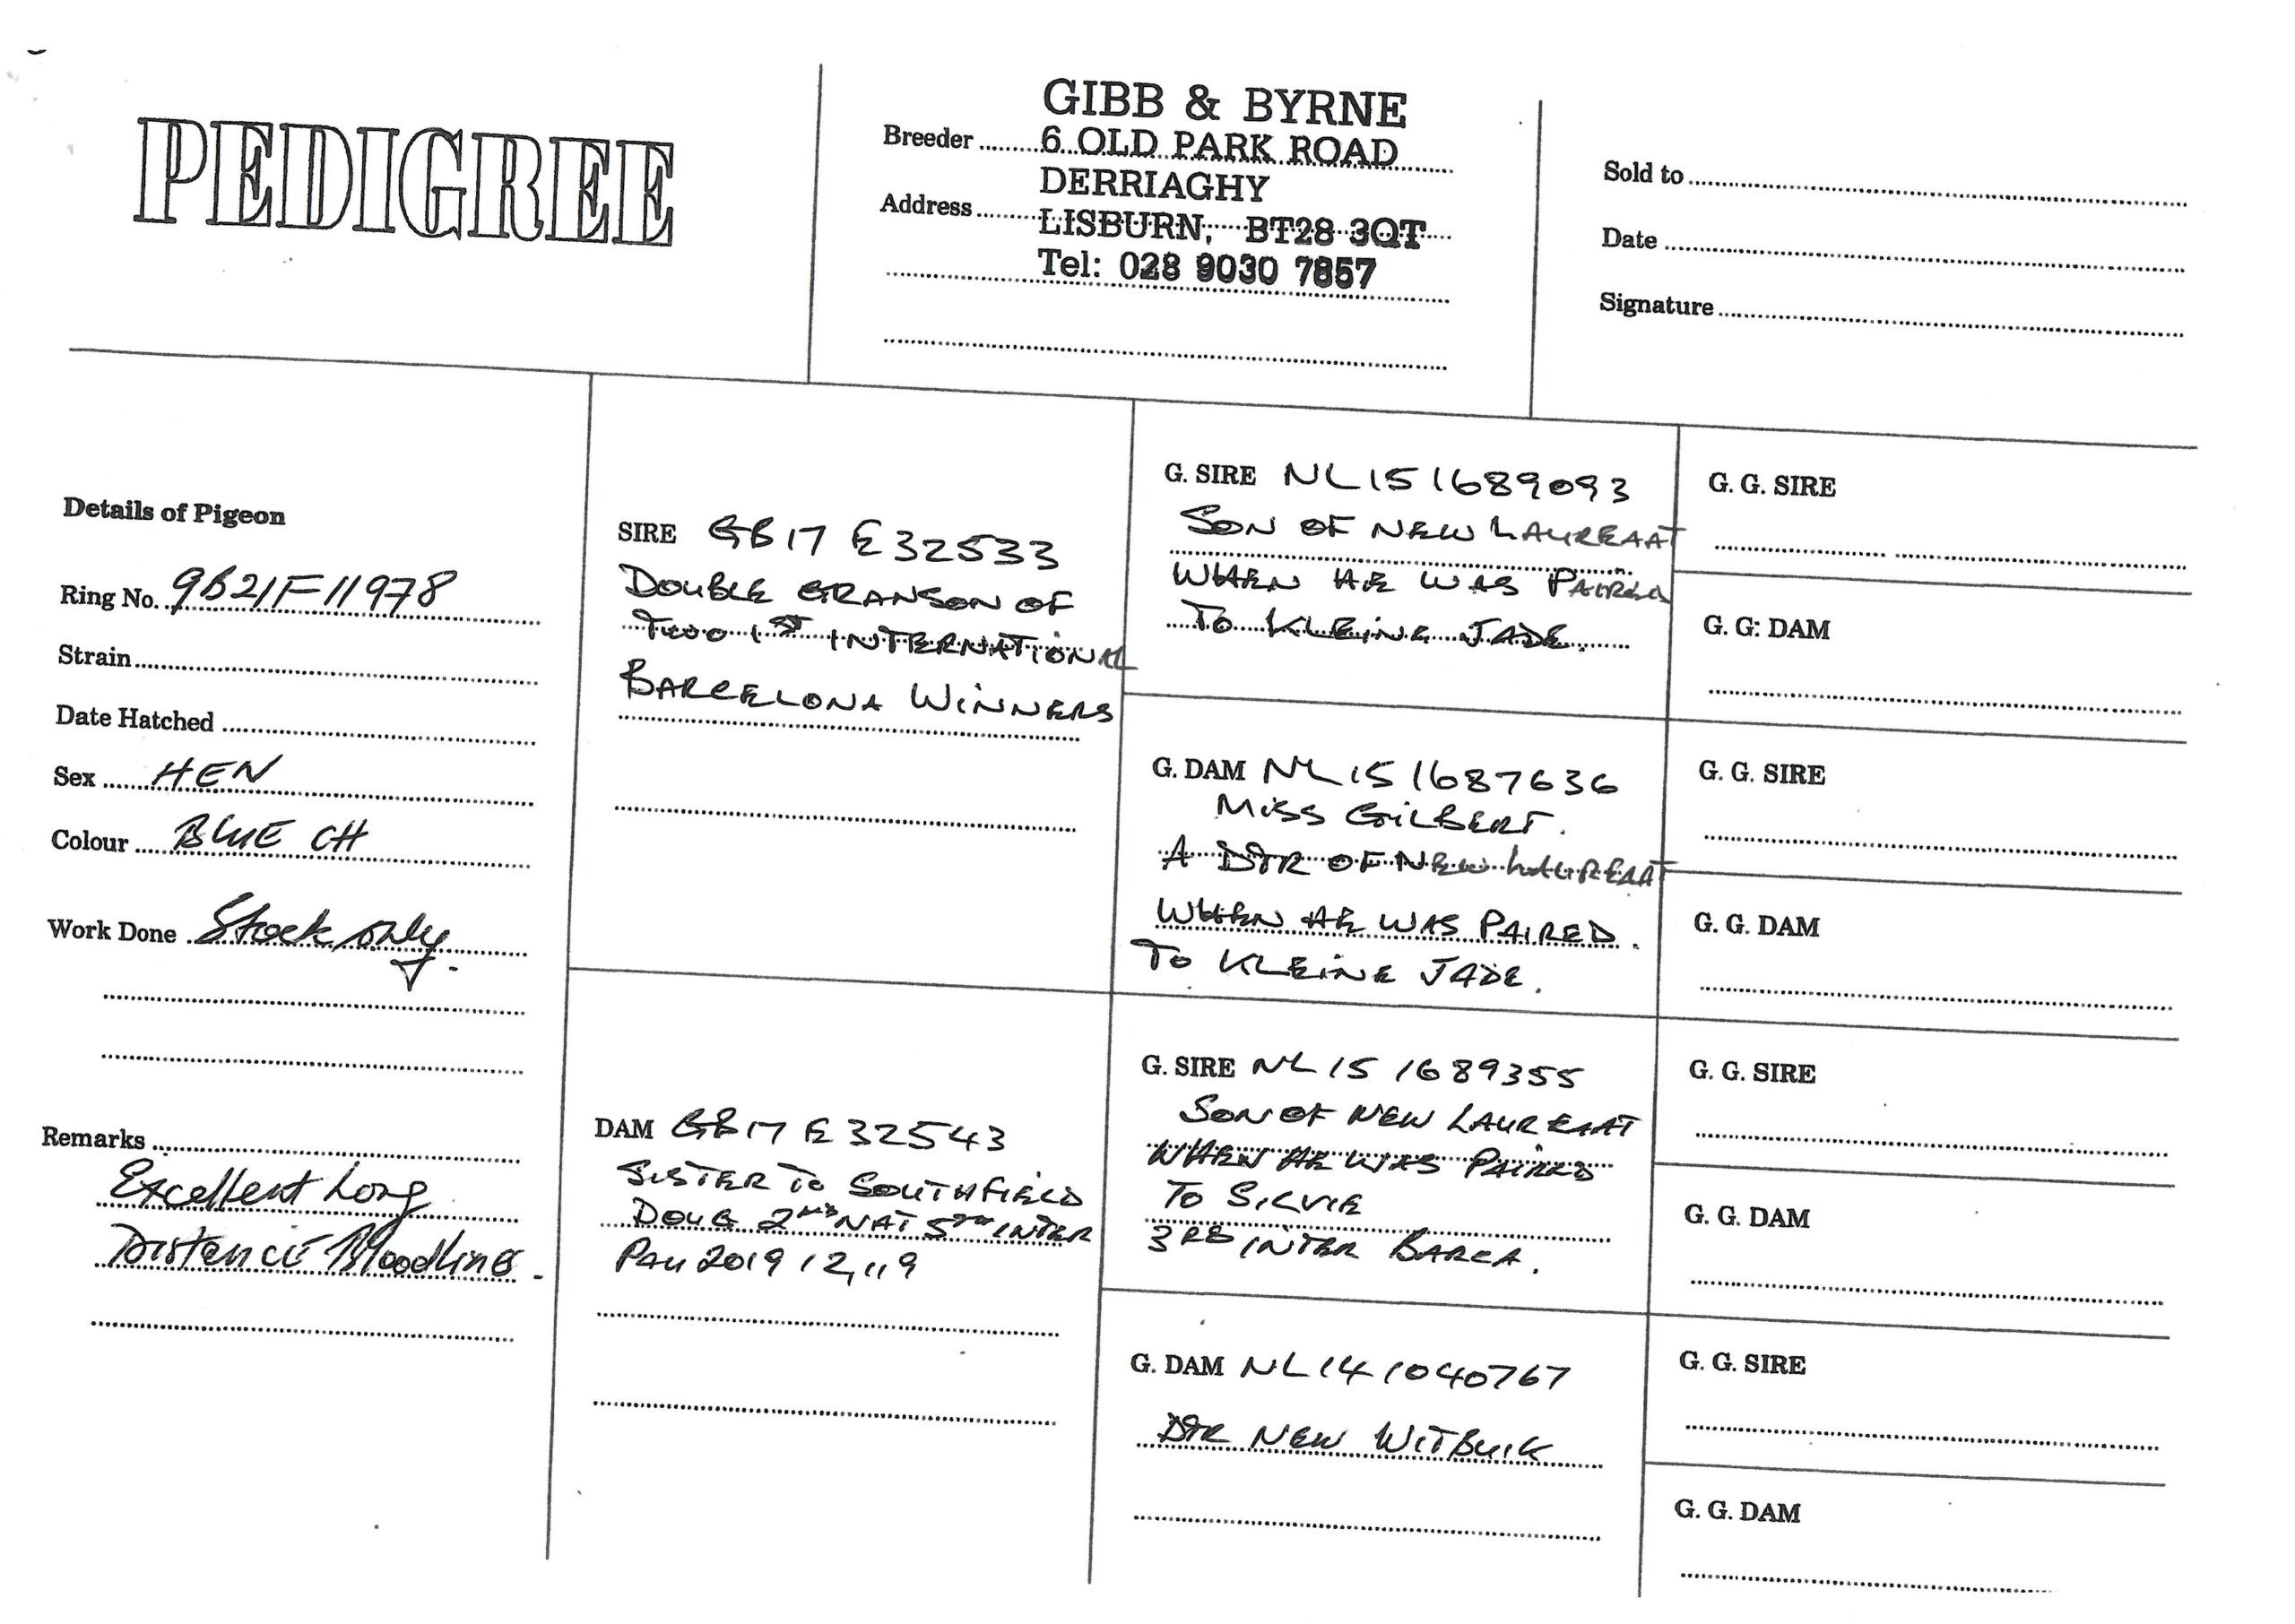 PEDIGREE
GIBB & BYRNE
Breeder 6 OLD PARK ROAD
DERRIAGHY
Address LISBURN, BT28 3QT
Tel: 028 9030 7857
Sold to
Date
Signature
Details of Pigeon
Ring No. GB21F11978
Strain
Date Hatched
Sex HEN
Colour BLUE CH
Work Done Stock only.
Remarks
Excellent Long
Distance Bloodline.
SIRE GB17 E32533
DOUBLE GRANSON OF
TWO 1ST INTERNATIONAL
BARCELONA WINNERS
DAM GB17 E32543
SISTER TO SOUTHFIELD
DOUG 2ND NAT 5TH INTER
PAU 2019 12,119
G. SIRE NL15 1689093
SON OF NEW LAUREAAT
WHEN HE WAS PAIRED
TO KLEINE JADE.
G. DAM NL15 1687636
MISS GILBERT.
A DTR OF NEW LAUREAAT
WHEN HE WAS PAIRED.
TO KLEINE JADE.
G. SIRE NL15 1689355
SON OF NEW LAUREAAT
WHEN HE WAS PAIRED
TO SILVIE
3RD INTER BARCA.
G. DAM NL14 1040767
DTR NEW WITBUIK
G. G. SIRE
G. G: DAM
G. G. SIRE
G. G. DAM
G. G. SIRE
G. G. DAM
G. G. SIRE
G. G. DAM